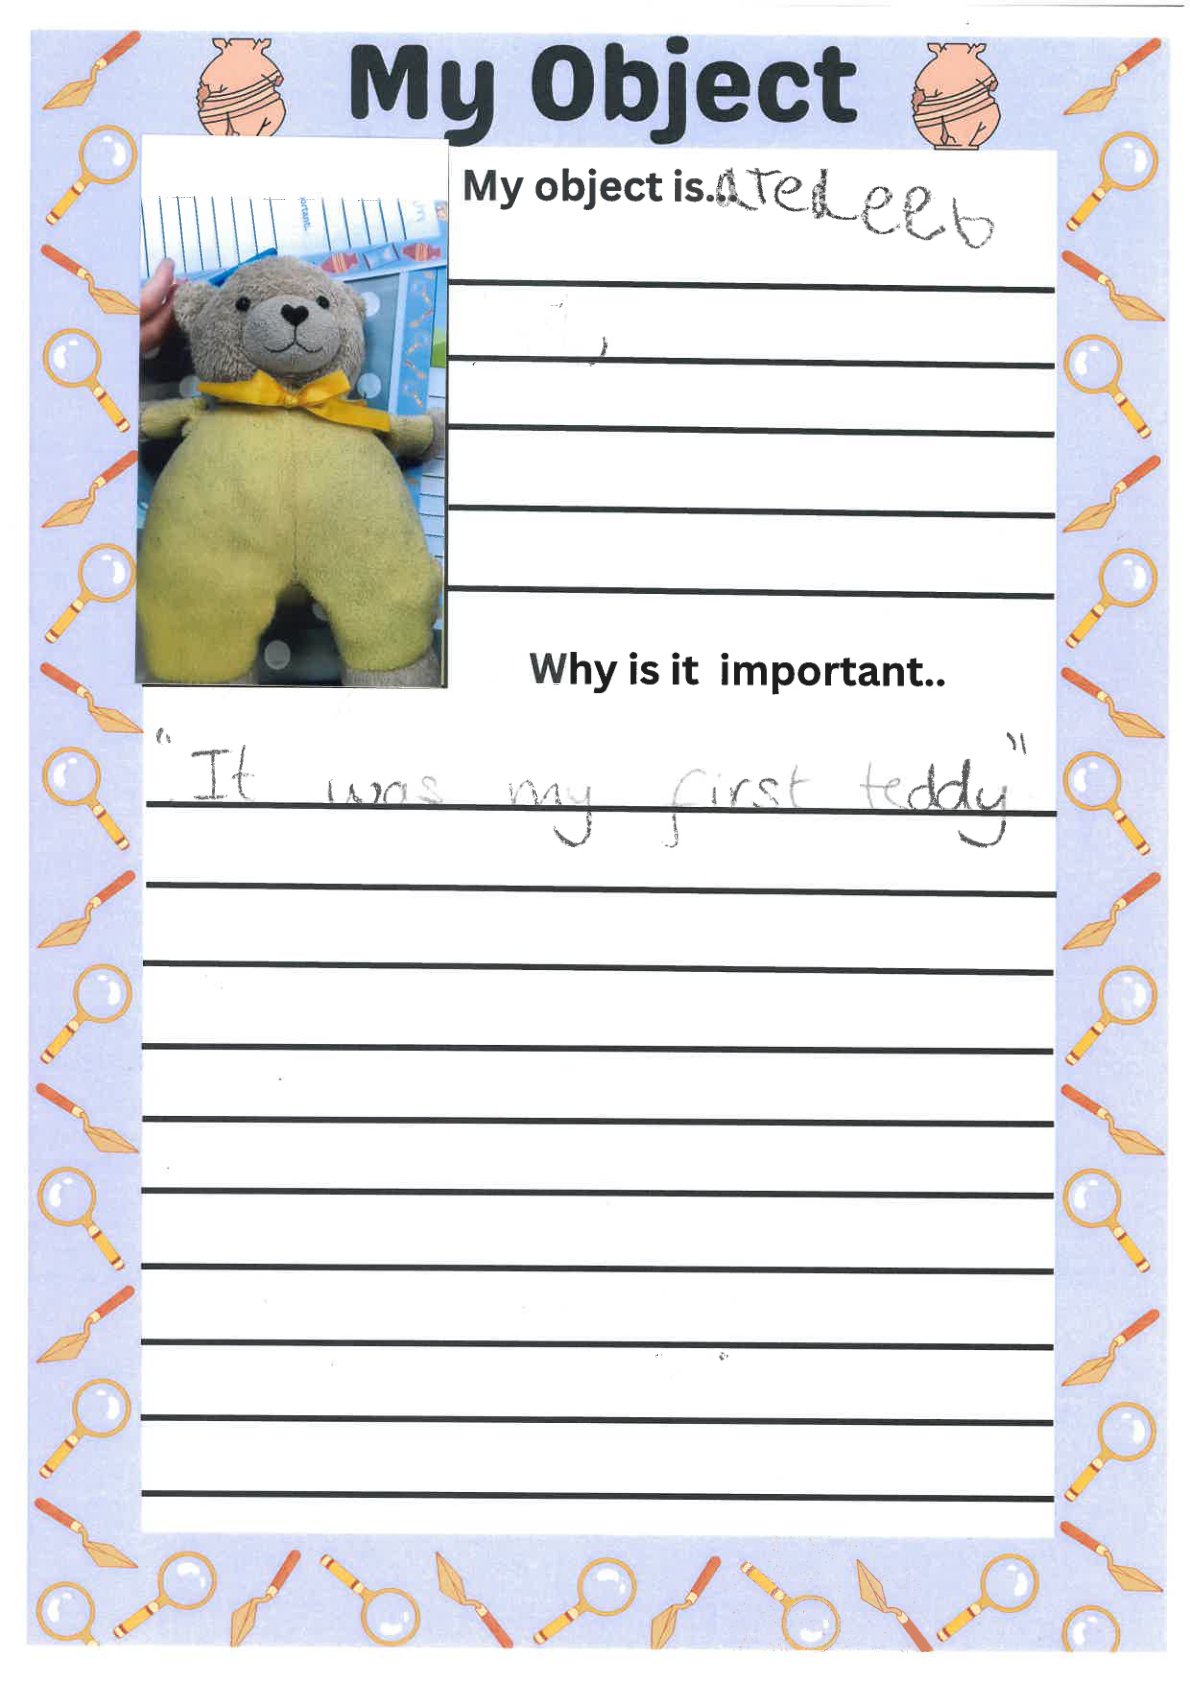 My Object
My object is...
Why is it important..
"It was my first teddy"